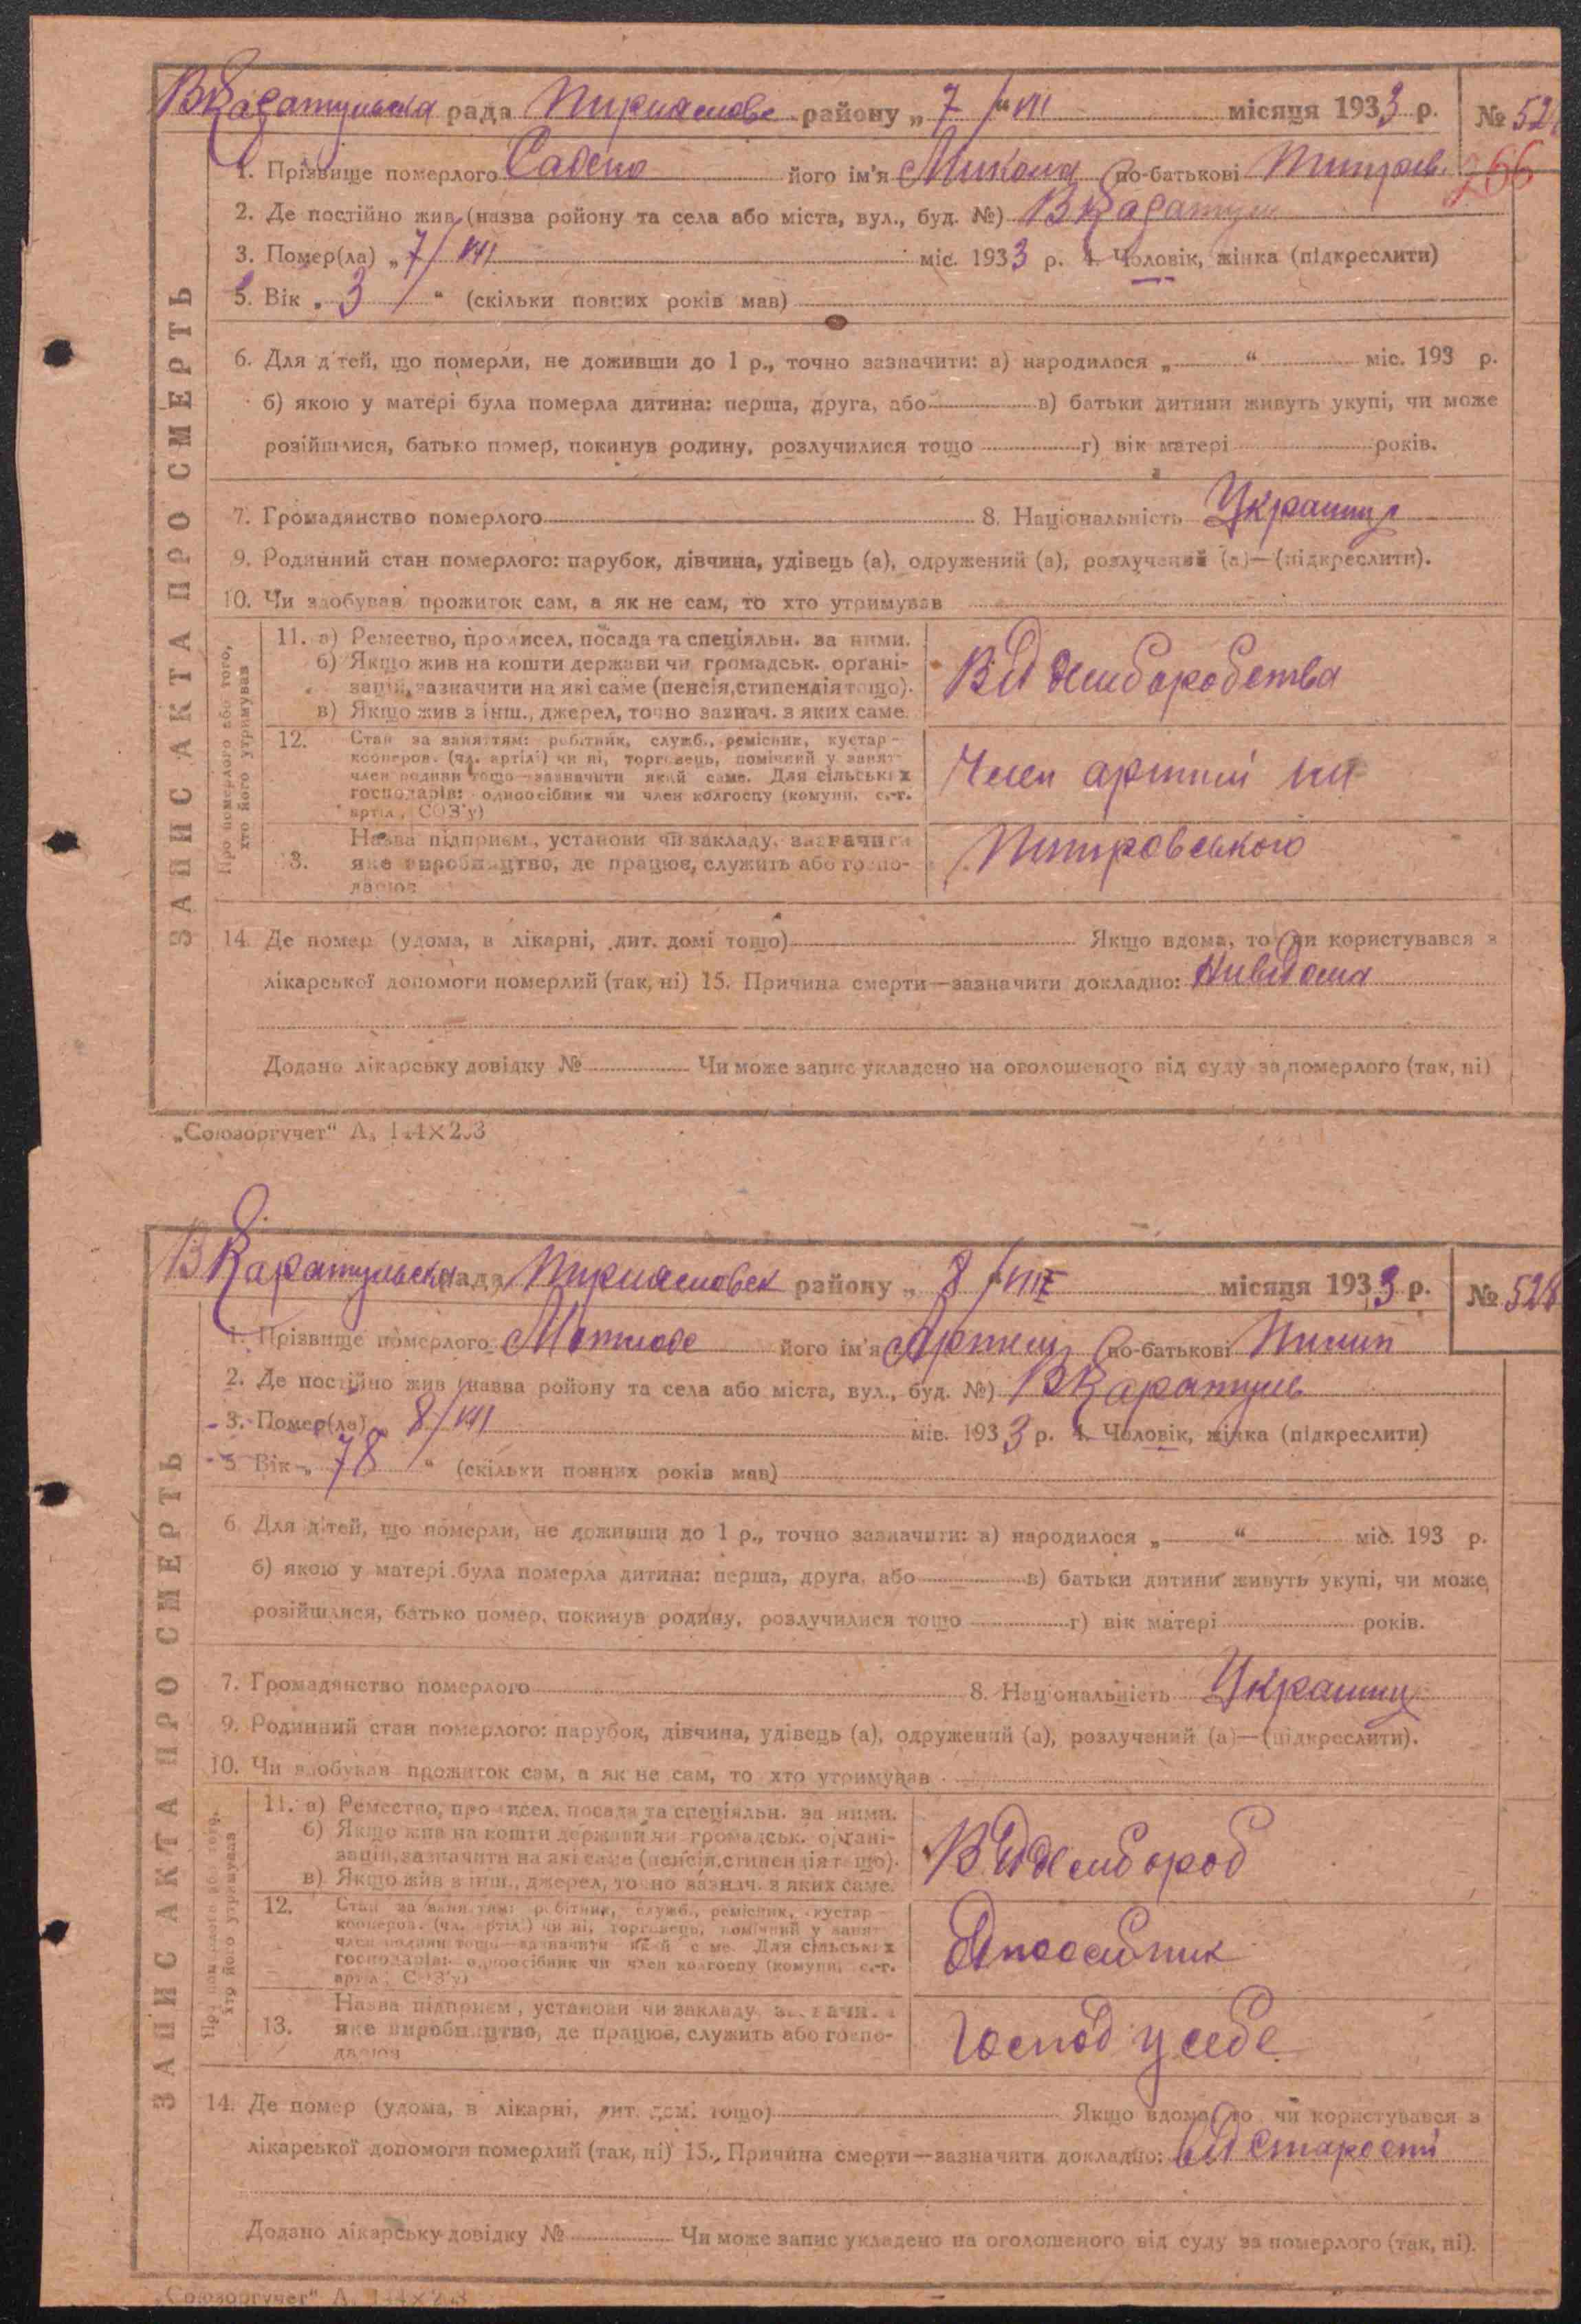 ВКаратульска рада Переяславс. району „ 7 / VIII місяця 1933 р. № 52
266
1. Прізвище померлого його ім'я Микола по-батькові
2. Де постійно жив (назва ройону та села або міста, вул., буд. №) ВКаратуль
3. Помер(ла) „ 7 / VIII міс. 1933 р. 4. Чоловік, жінка (підкреслити)
5. Вік „ 3 “ (скільки повних років мав)
6. Для дітей, що померли, не доживши до 1 р., точно зазначити: а) народилося „ “ міс. 193 р.
б) якою у матері була померла дитина: перша, друга, або в) батьки дитини живуть укупі, чи може
розійшлися, батько помер, покинув родину, розлучилися тощо г) вік матері років.
7. Громадянство померлого 8. Національність Українц
9. Родинний стан померлого: парубок, дівчина, удівець (а), одружений (а), розлучений (а)—(підкреслити).
10. Чи здобував прожиток сам, а як не сам, то хто утримував
11. а) Ремество, промисел, посада та спеціяльн. за ними.
б) Якщо жив на кошти держави чи громадськ. органі-
зацій, зазначити на які саме (пенсія, стипендія тощо).
в) Якщо жив з інш., джерел, точно зазнач. з яких саме.
Від хліборобства
12. Стан за заняттям: робітник, служб., ремісник, кустар -
кооперов. (чл. артілі) чи ні, торговець, помічний у занят-
член родини тощо—зазначити який саме. Для сільських
господарів: одноосібник чи член колгоспу (комуни, с.-г.
артіл., СОЗ'у)
Член артилі ім
13. Назва підприєм., установи чи закладу, зазначити
яке виробництво, де працює, служить або госпо-
дарює
Петровського
14. Де помер (удома, в лікарні, дит. домі тощо) Якщо вдома, то чи користувався з
лікарської допомоги померлий (так, ні) 15. Причина смерти—зазначити докладно: Нивідома
Додано лікарську довідку № Чи може запис укладено на оголошеного від суду за померлого (так, ні)
ЗАПИС АКТА ПРО СМЕРТЬ
Про померлого або того,
хто його утримував
„Союзоргучет“
ВКаратульска рада Переяславськ району „ 8 / VIII місяця 1933 р. № 528
1. Прізвище померлого його ім'я Артем по-батькові Пилип
2. Де постійно жив (назва ройону та села або міста, вул., буд. №) ВКаратуль
3. Помер(ла) „ 8 / VIII міс. 1933 р. 4. Чоловік, жінка (підкреслити)
5. Вік „ 78 “ (скільки повних років мав)
6. Для дітей, що померли, не доживши до 1 р., точно зазначити: а) народилося „ “ міс. 193 р.
б) якою у матері була померла дитина: перша, друга, або в) батьки дитини живуть укупі, чи може,
розійшлися, батько помер, покинув родину, розлучилися тощо г) вік матері років.
7. Громадянство померлого 8. Національність Українц
9. Родинний стан померлого: парубок, дівчина, удівець (а), одружений (а), розлучений (а)—(підкреслити).
10. Чи здобував прожиток сам, а як не сам, то хто утримував
11. а) Ремество, промисел, посада та спеціяльн. за ними.
б) Якщо жив на кошти держави чи громадськ. органі-
зацій, зазначити на які саме (пенсія, стипендія тощо).
в) Якщо жив з інш., джерел, точно зазнач. з яких саме.
Від хлибороб
12. Стан за заняттям: робітник, служб., ремісник, кустар -
кооперов. (чл. артілі) чи ні, торговець, помічний у занят-
член родини тощо—зазначити який саме. Для сільських
господарів: одноосібник чи член колгоспу (комуни, с.-г.
артіл., СОЗ'у)
Одноосибник
13. Назва підприєм., установи чи закладу, зазначити
яке виробництво, де працює, служить або госпо-
дарює
Господ у себе
14. Де помер (удома, в лікарні, дит. домі тощо) Якщо вдома, то чи користувався з
лікарської допомоги померлий (так, ні) 15. Причина смерти—зазначити докладно: від старости
Додано лікарську довідку № Чи може запис укладено на оголошеного від суду за померлого (так, ні).
ЗАПИС АКТА ПРО СМЕРТЬ
Про померлого або того,
хто його утримував
„Союзоргучет“